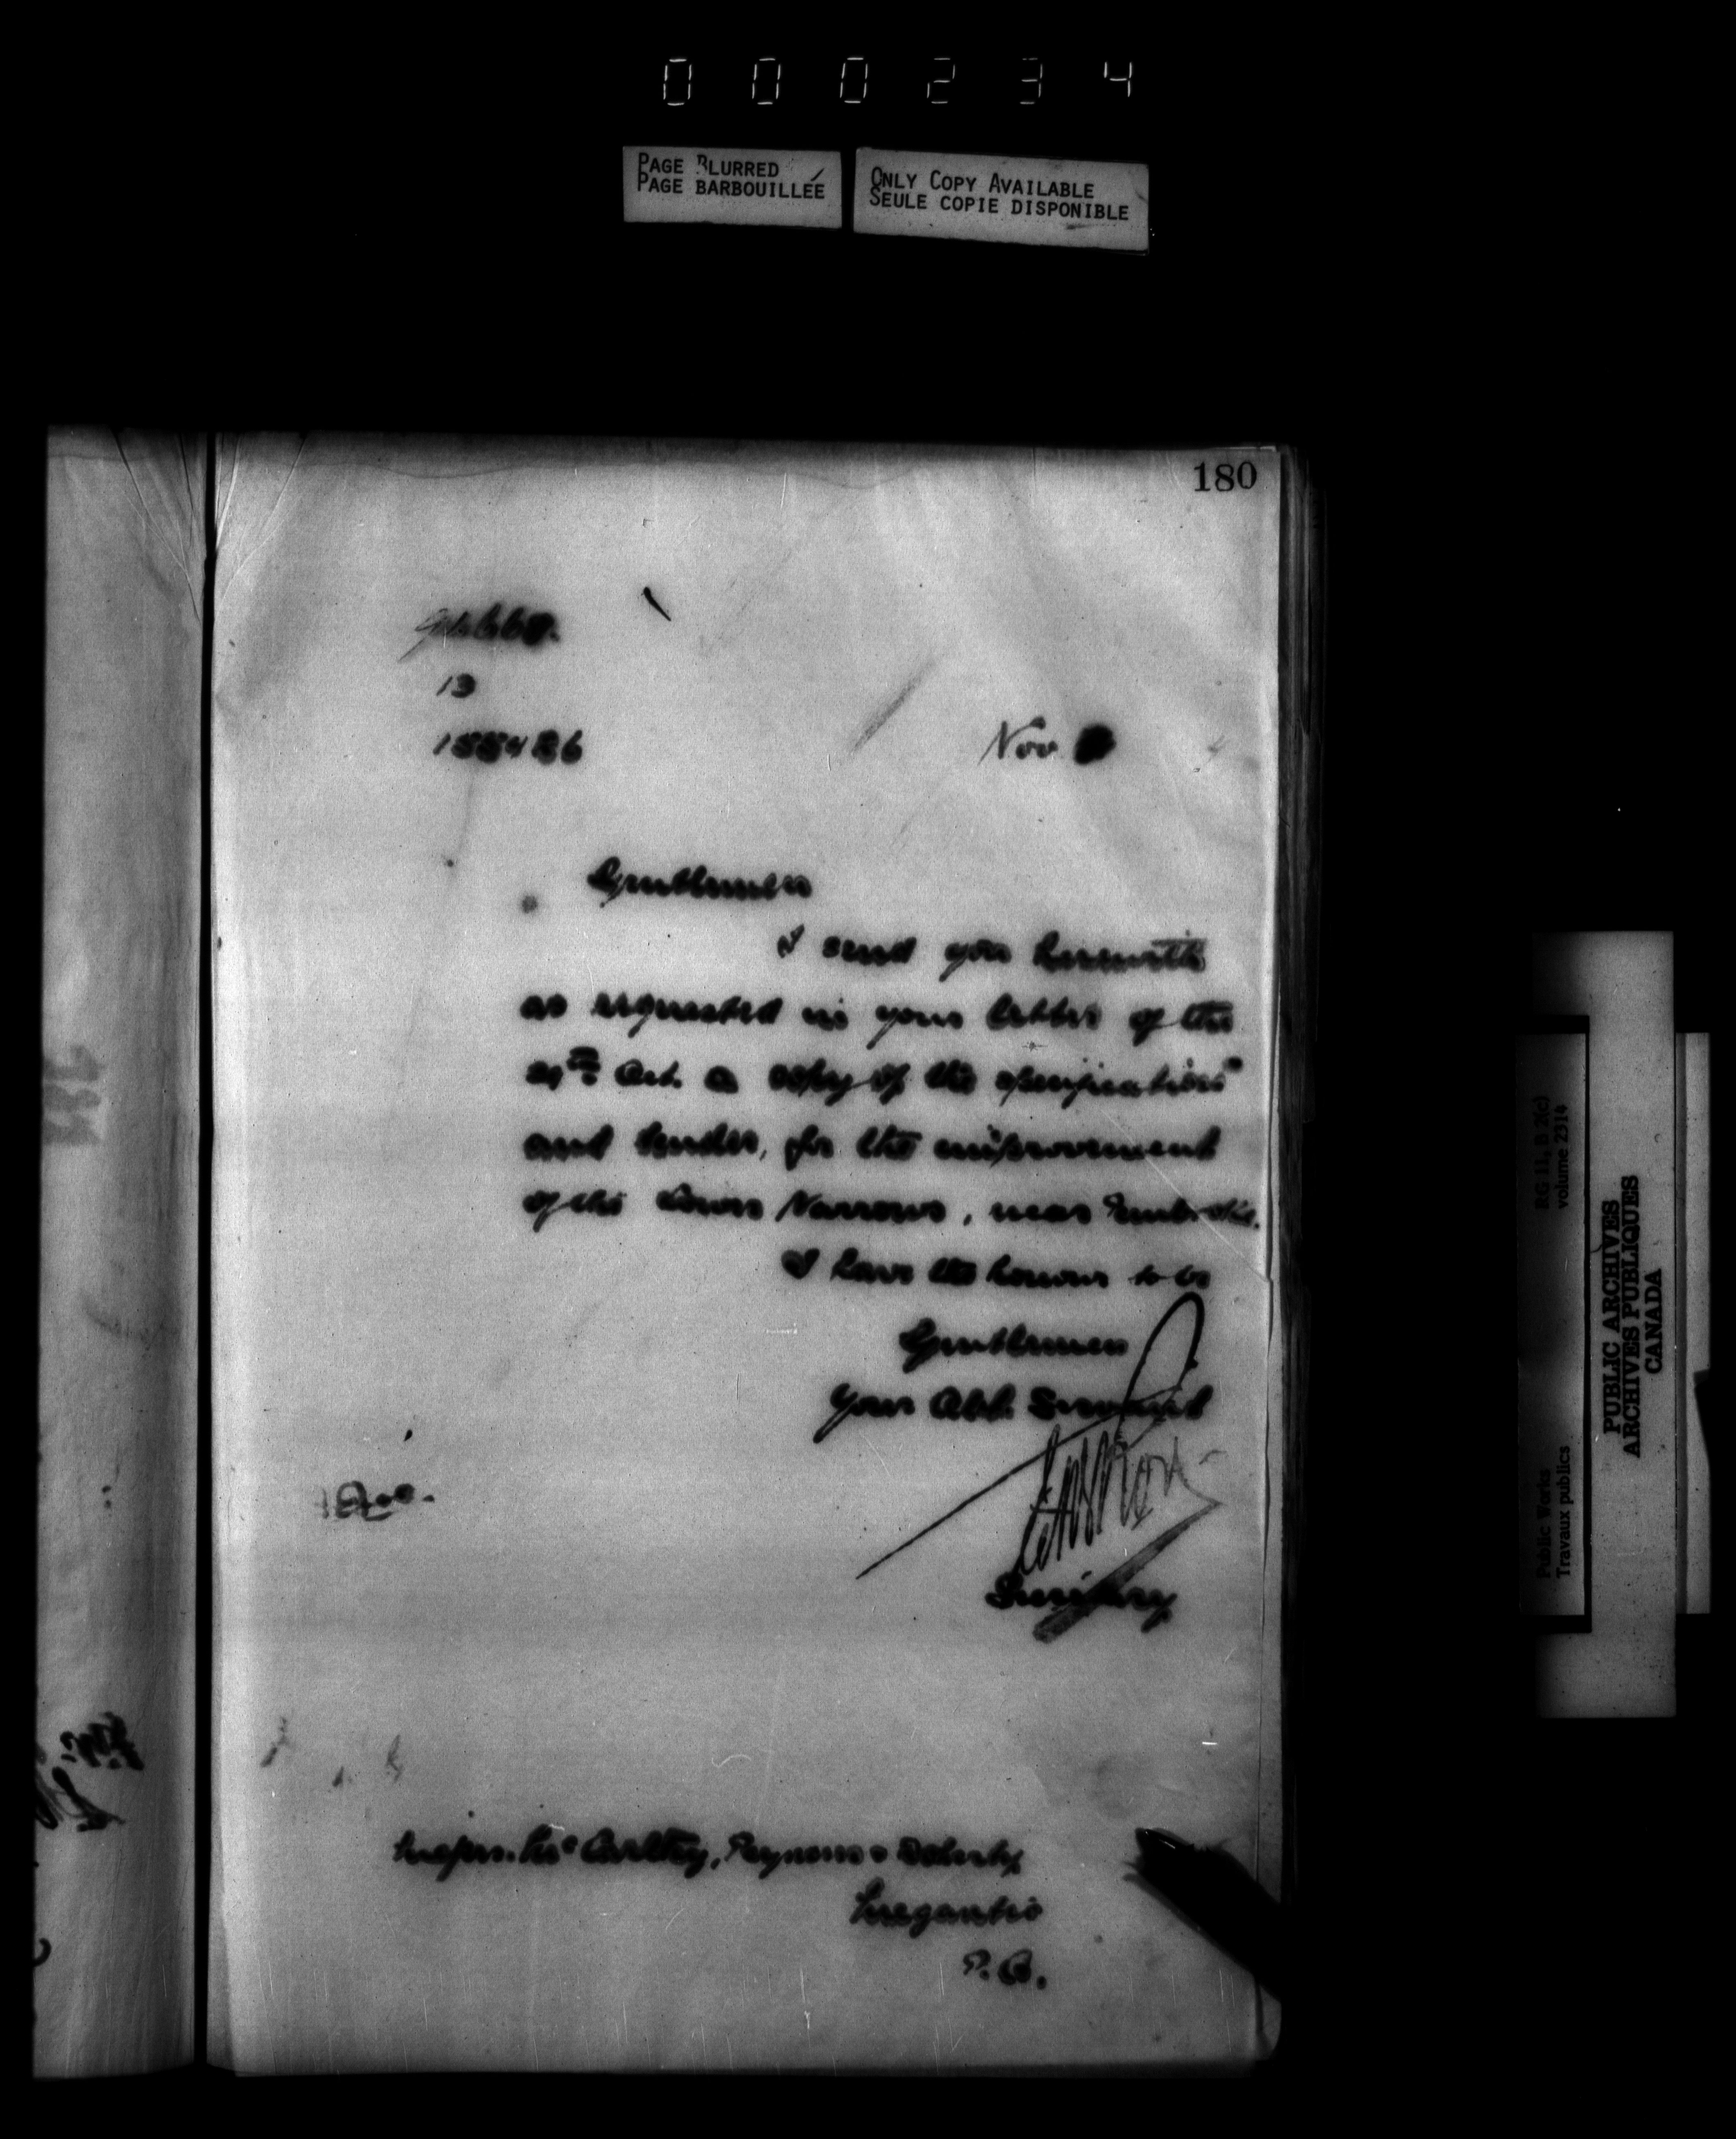 000234
PAGE BLURRED
PAGE BARBOUILLÉE
ONLY COPY AVAILABLE
SEULE COPIE DISPONIBLE
180
13
Nov
Gentlemen
I send you herewith
as requested in your letter of the
29th Oct. a copy of the specifications
and tender, for the improvement
of the Narrows, near Pembroke.
I have the honour to be
Gentlemen
Your Obt. Servant
Secretary
Messrs. McCarthy, & Doherty
Megantic
P.Q.
RG 11, B 2(c)
volume 2314
Public Works
Travaux publics
PUBLIC ARCHIVES
ARCHIVES PUBLIQUES
CANADA